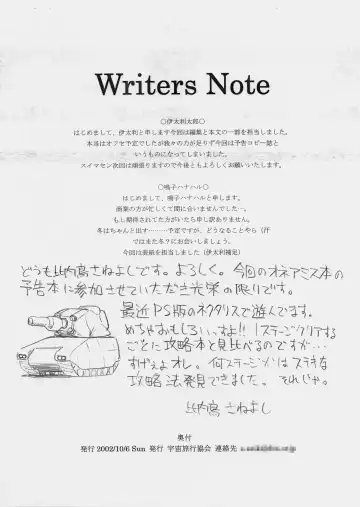 Writers Note
○伊太利太郎○
はじめまして、伊太利と申します今回は編集と本文の一部を担当しました。
本当はオフセ予定でしたが我々の力が足りず今回は予告コピー誌と
いうものになってしまいました。
スイマセン次回は頑張りますので今後ともよろしくお願いいたします。
○鳴子ハナハル○
はじめまして、鳴子ハナハルと申します。
商業の方が忙しくて間に合いませんでした…。
もし期待されてた方がいたら申し訳ありません。
冬はちゃんと出す………予定ですが、どうなることやら（汗
ではまた冬？にお会いしましょう。
今回は表紙を担当しました（伊太利補足）
どうも比内鳥さねよしです。よろしく。今回のオネアミス本の
予告本に参加させていただき光栄の限りです。
最近PS版のネクタリスで遊んでます。
めちゃおもしろいっすよ!! 1ステージクリアする
ごとに攻略本と見比べるのですが…
すげぇよオレ。何ステージかはステキな
攻略法発見できました。それじゃ。
比内鳥さねよし
奥付
発行 2002/10/6 Sun 発行 宇宙旅行協会 連絡先